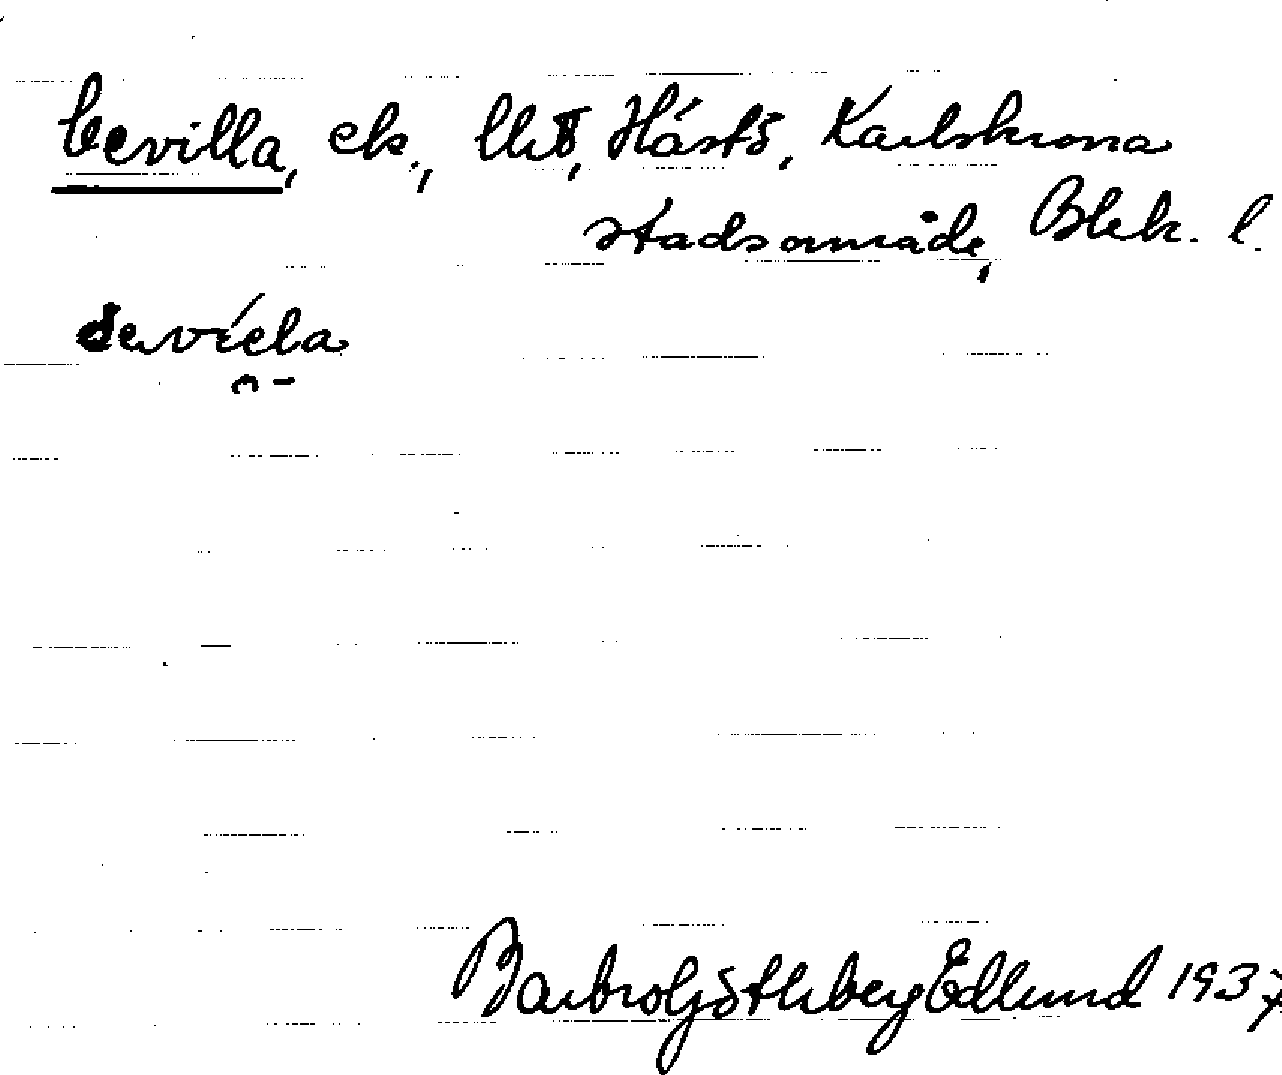 Cevilla, ek., Hästö, Karlskrona
stadsområde, Blek. l.
sevíela
Barbro Göthberg Edlund 1937